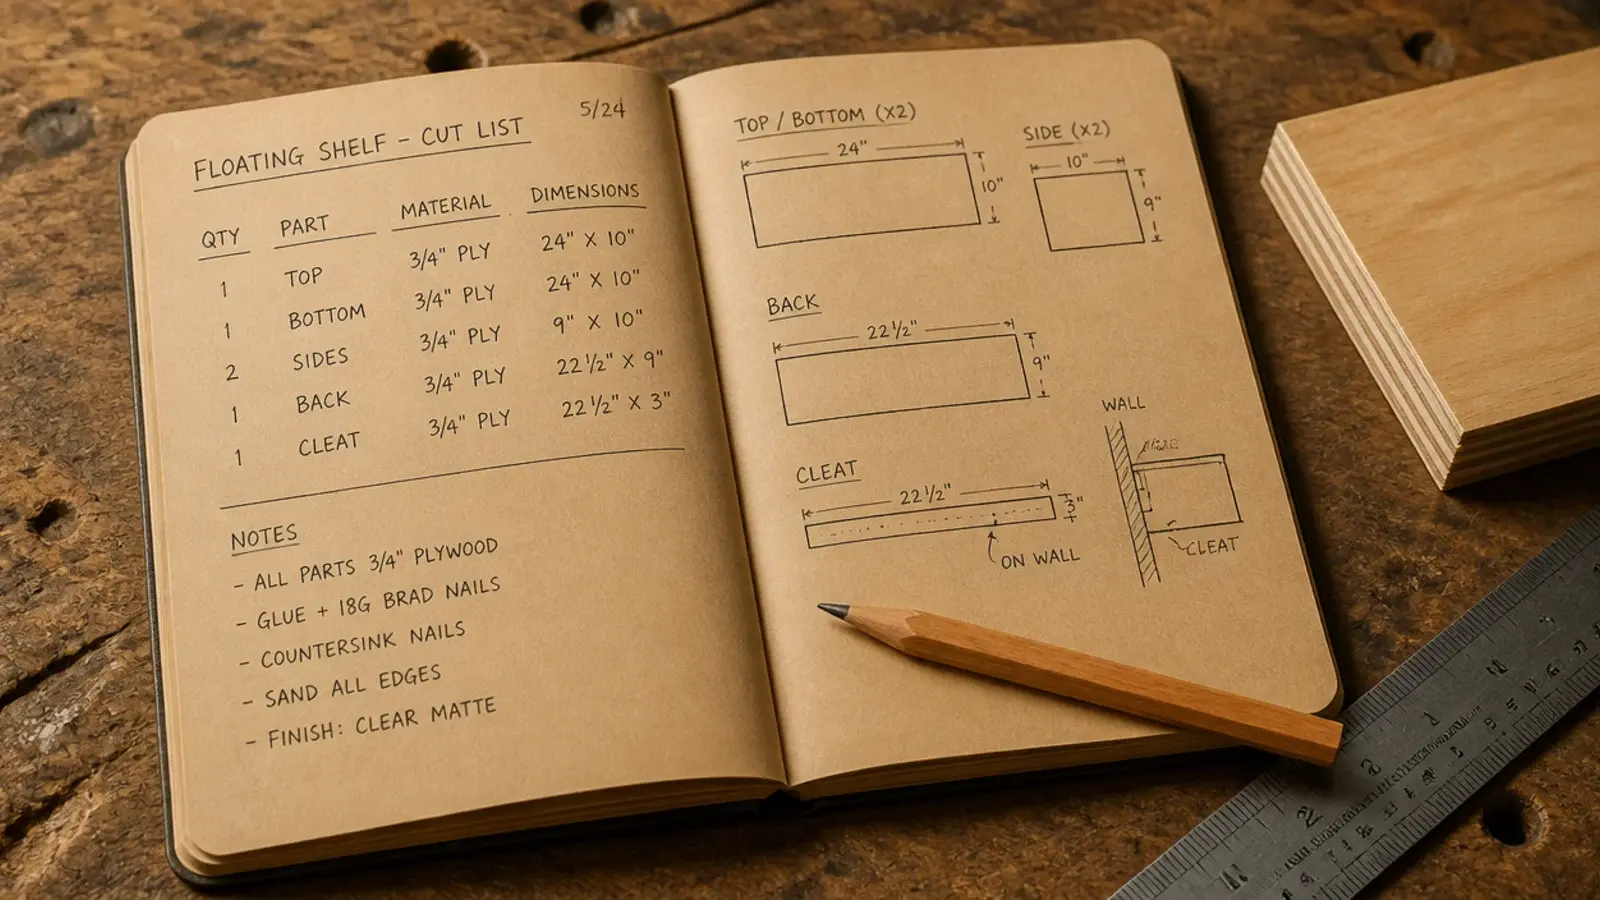 5/24
FLOATING SHELF – CUT LIST
QTY PART MATERIAL DIMENSIONS
1 TOP 3/4" PLY 24" X 10"
1 BOTTOM 3/4" PLY 24" X 10"
2 SIDES 3/4" PLY 9" X 10"
1 BACK 3/4" PLY 22 1/2" X 9"
1 CLEAT 3/4" PLY 22 1/2" X 3"
NOTES
– ALL PARTS 3/4" PLYWOOD
– GLUE + 18G BRAD NAILS
– COUNTERSINK NAILS
– SAND ALL EDGES
– FINISH: CLEAR MATTE
TOP / BOTTOM (X2)
24"
10"
SIDE (X2)
10"
9"
BACK
22 1/2"
9"
CLEAT
22 1/2"
3"
ON WALL
WALL
CLEAT